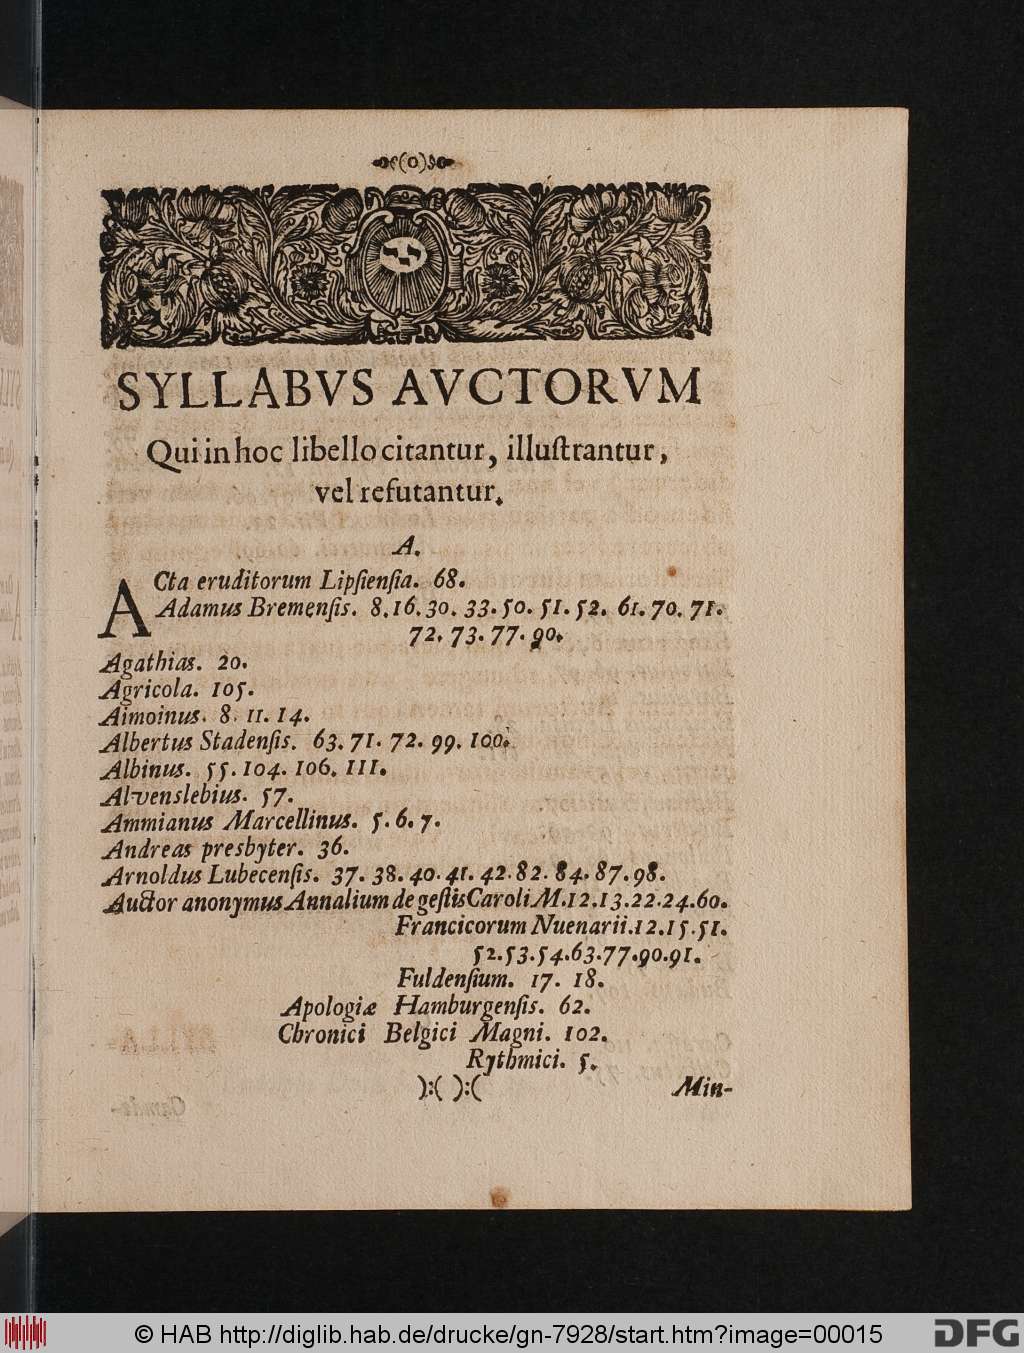 (o)
SYLLABVS AVCTORVM
Qui in hoc libello citantur, illuſtrantur,
vel refutantur.
A.
ACta eruditorum Lipſienſia. 68.
Adamus Bremenſis. 8. 16. 30. 33. 50. 51. 52. 61. 70. 71.
72. 73. 77. 90.
Agathias. 20.
Agricola. 105.
Aimoinus. 8. 11. 14.
Albertus Stadenſis. 63. 71. 72. 99. 100.
Albinus. 55. 104. 106. 111.
Alvenslebius. 57.
Ammianus Marcellinus. 5. 6. 7.
Andreas presbyter. 36.
Arnoldus Lubecenſis. 37. 38. 40. 41. 42. 82. 84. 87. 98.
Auctor anonymus Annalium de geſtis Caroli M. 12. 13. 22. 24. 60.
Francicorum Nuenarii. 12. 15. 51.
52. 53. 54. 63. 77. 90. 91.
Fuldenſium. 17. 18.
Apologiæ Hamburgenſis. 62.
Chronici Belgici Magni. 102.
Rythmici. 5.
):( ):( Min-
© HAB http://diglib.hab.de/drucke/gn-7928/start.htm?image=00015
DFG